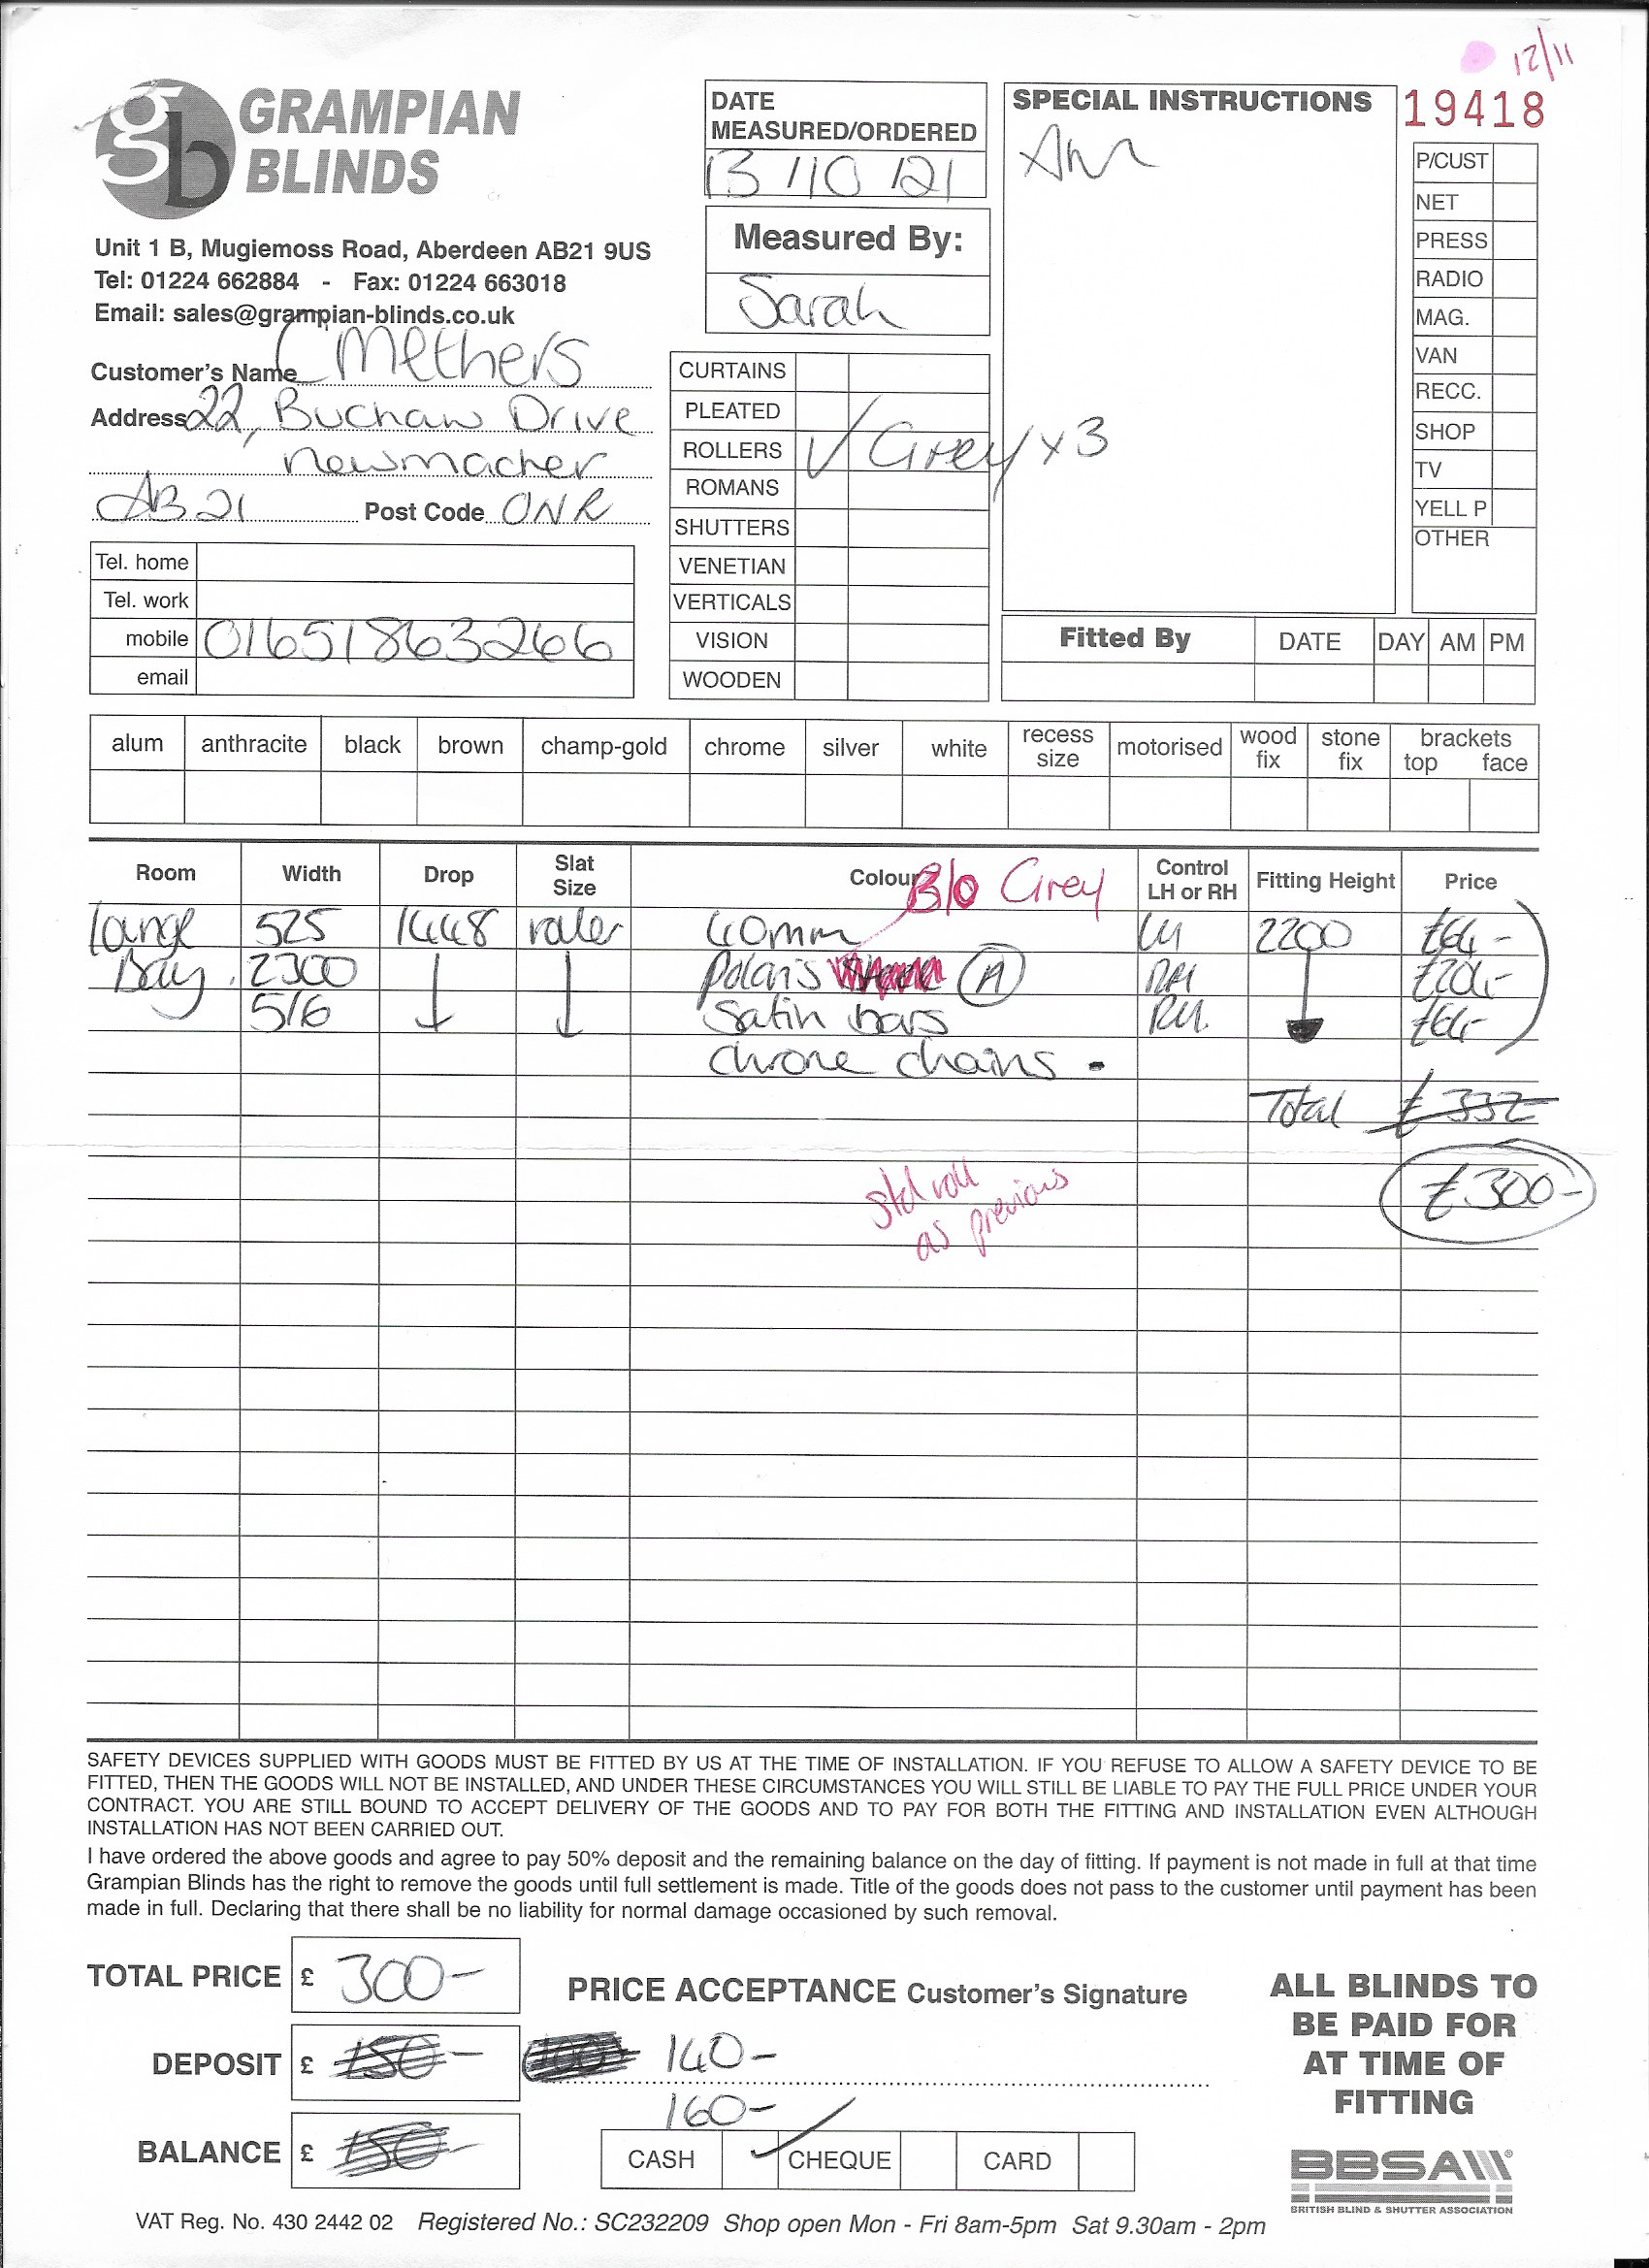 12/11
GRAMPIAN
BLINDS
Unit 1 B, Mugiemoss Road, Aberdeen AB21 9US
Tel: 01224 662884 - Fax: 01224 663018
Email: sales@grampian-blinds.co.uk
Customer's Name Methers
Address 22, Buchan Drive
Newmacher
AB21 Post Code 0NR
Tel. home
Tel. work
mobile 01651863266
email
DATE
MEASURED/ORDERED
13/10/21
Measured By:
Sarah
CURTAINS
PLEATED
ROLLERS ✓ Grey x 3
ROMANS
SHUTTERS
VENETIAN
VERTICALS
VISION
WOODEN
SPECIAL INSTRUCTIONS
19418
P/CUST
NET
PRESS
RADIO
MAG.
VAN
RECC.
SHOP
TV
YELL P
OTHER
Fitted By DATE DAY AM PM
alum anthracite black brown champ-gold chrome silver white recess size motorised wood fix stone fix brackets top face
Room Width Drop Slat Size Colour B/O Grey Control LH or RH Fitting Height Price
Lounge 525 1448 roller 40mm LH 2200 £64-
Bay. 2300 Polaris (A) RH £204-
516 Satin bars RH. £64-
Chrome chains
Total £332
£300-
Std roll
as previous
SAFETY DEVICES SUPPLIED WITH GOODS MUST BE FITTED BY US AT THE TIME OF INSTALLATION. IF YOU REFUSE TO ALLOW A SAFETY DEVICE TO BE
FITTED, THEN THE GOODS WILL NOT BE INSTALLED, AND UNDER THESE CIRCUMSTANCES YOU WILL STILL BE LIABLE TO PAY THE FULL PRICE UNDER YOUR
CONTRACT. YOU ARE STILL BOUND TO ACCEPT DELIVERY OF THE GOODS AND TO PAY FOR BOTH THE FITTING AND INSTALLATION EVEN ALTHOUGH
INSTALLATION HAS NOT BEEN CARRIED OUT.
I have ordered the above goods and agree to pay 50% deposit and the remaining balance on the day of fitting. If payment is not made in full at that time
Grampian Blinds has the right to remove the goods until full settlement is made. Title of the goods does not pass to the customer until payment has been
made in full. Declaring that there shall be no liability for normal damage occasioned by such removal.
TOTAL PRICE £ 300-
PRICE ACCEPTANCE Customer's Signature
DEPOSIT £ 150- 140-
160-
BALANCE £ 150-
CASH ✓ CHEQUE CARD
ALL BLINDS TO
BE PAID FOR
AT TIME OF
FITTING
BBSA
BRITISH BLIND & SHUTTER ASSOCIATION
VAT Reg. No. 430 2442 02 Registered No.: SC232209 Shop open Mon - Fri 8am-5pm Sat 9.30am - 2pm